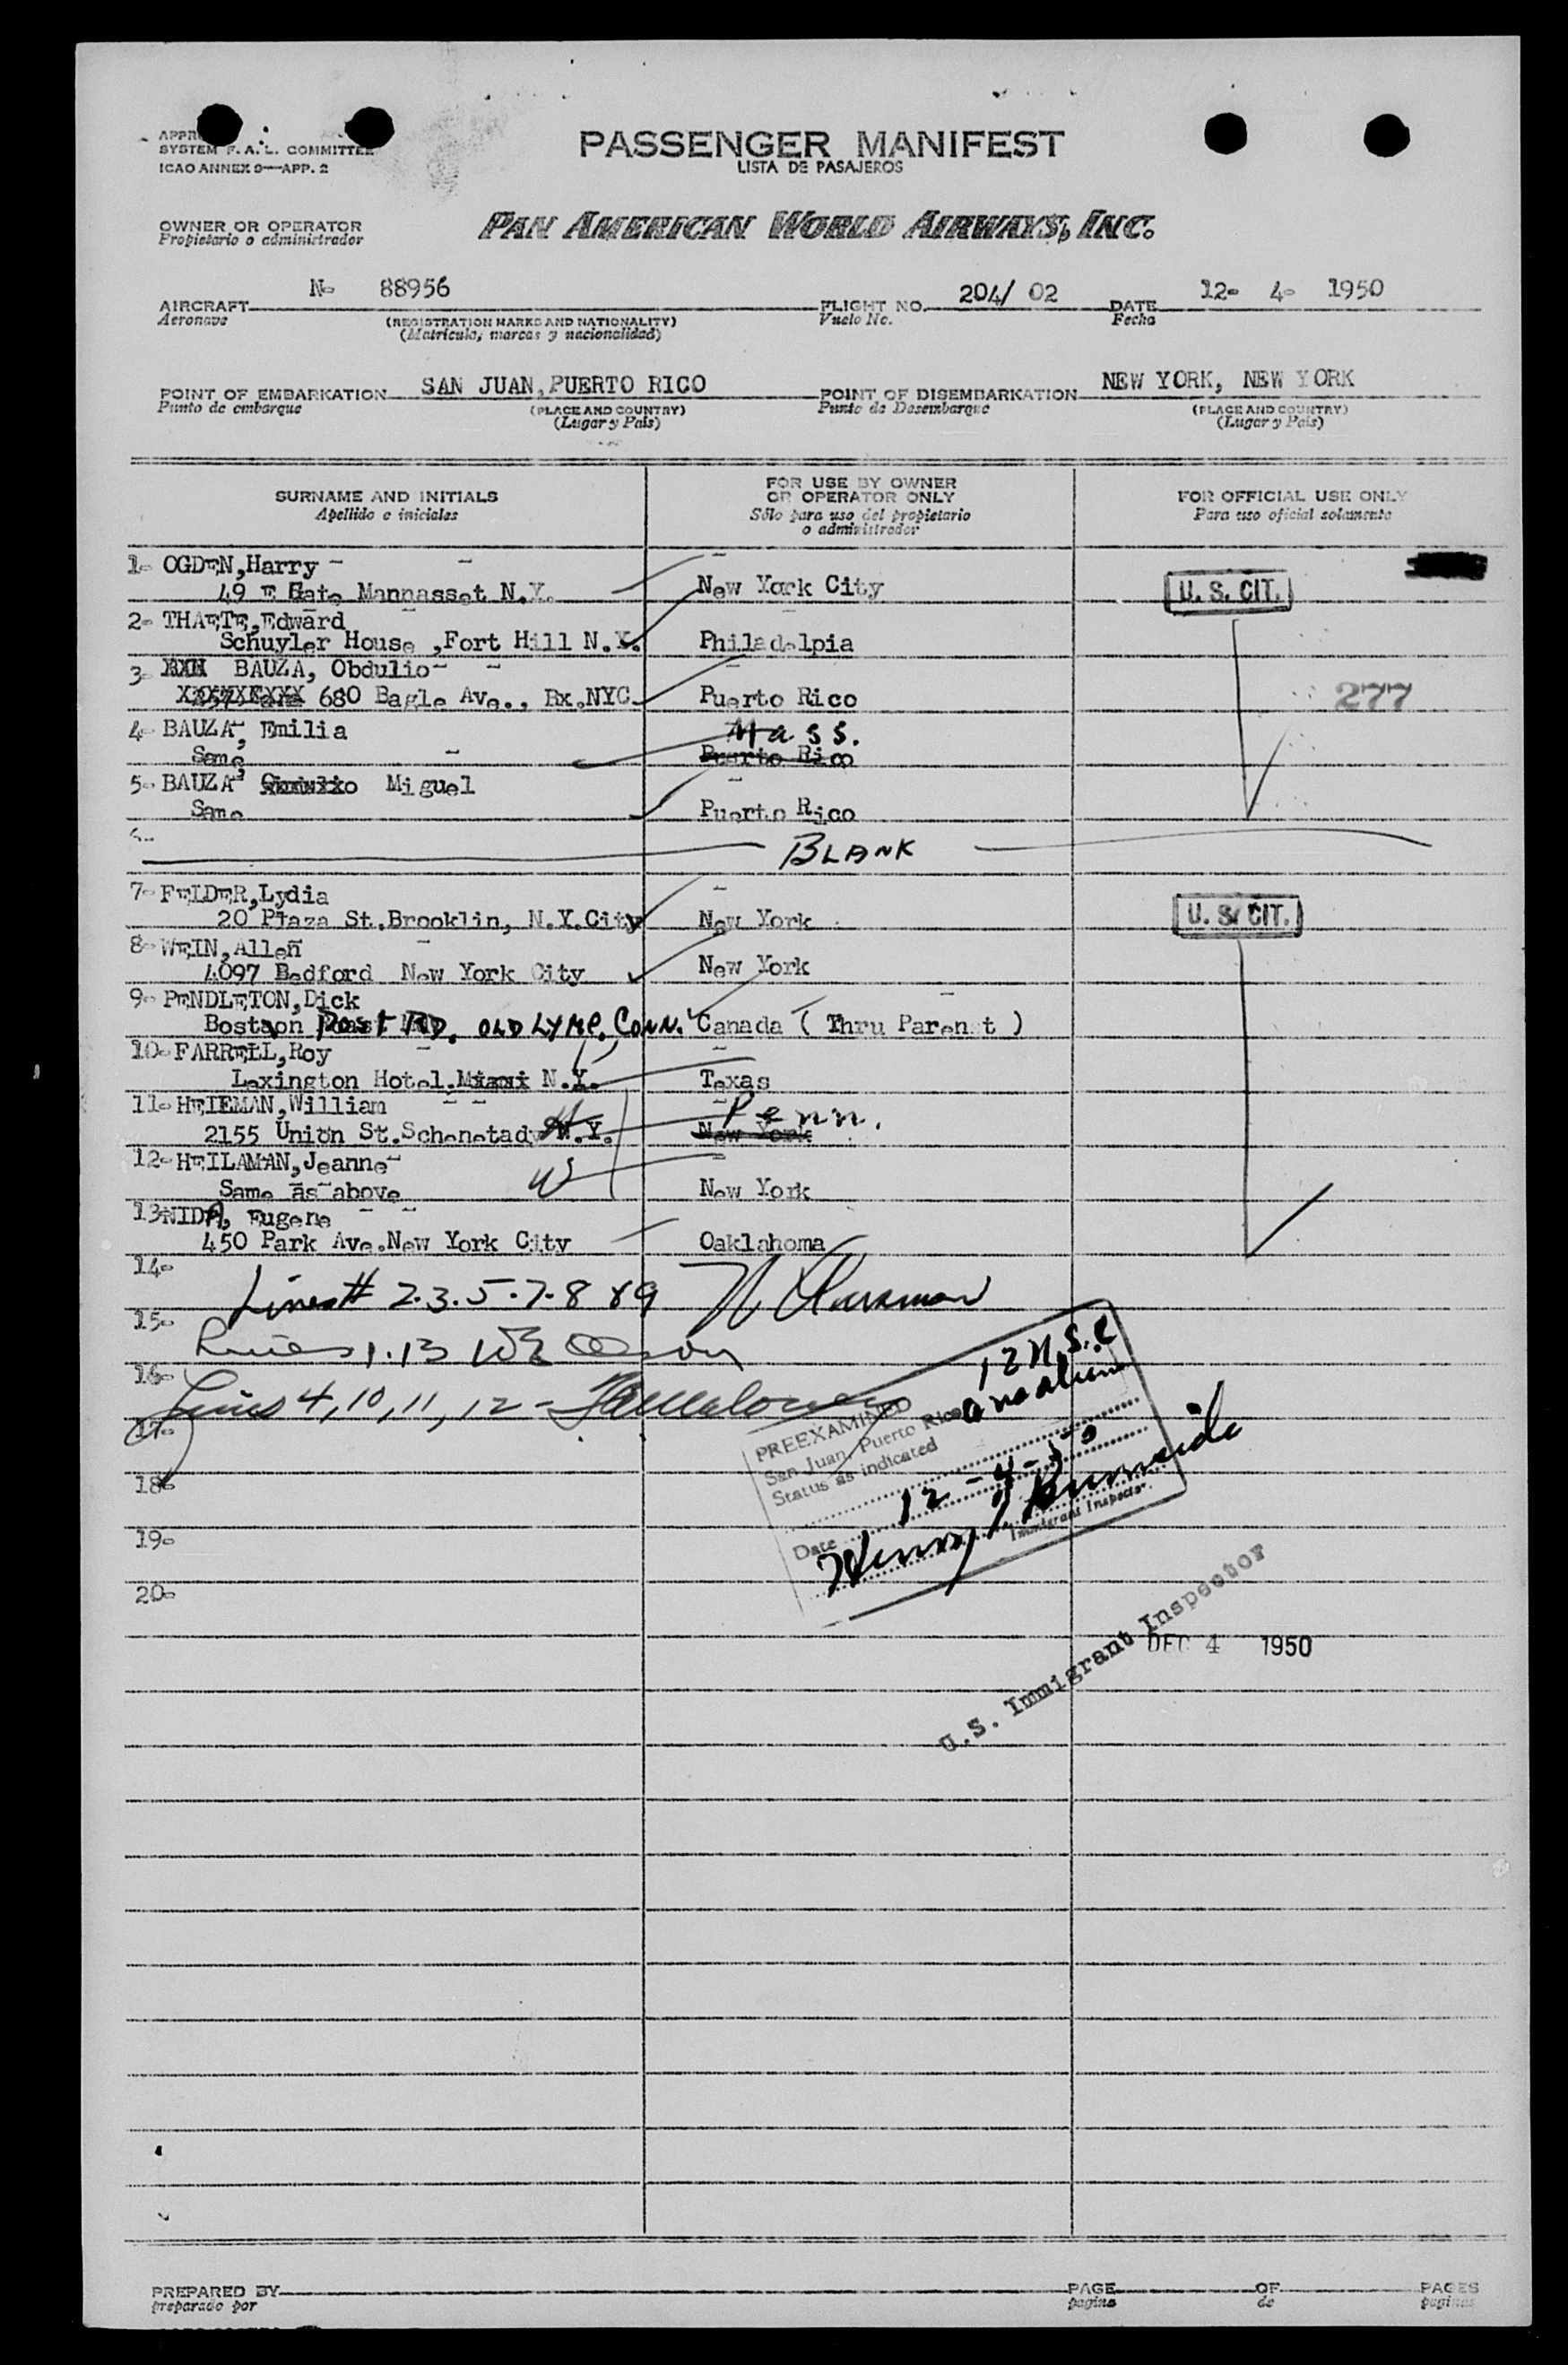 SYSTEM F. A. L. COMMITTEE
ICAO ANNEX 9—APP. 2
PASSENGER MANIFEST
LISTA DE PASAJEROS
OWNER OR OPERATOR
Propietario o administrador
PAN AMERICAN WORLD AIRWAYS, INC.
AIRCRAFT N- 88956 FLIGHT NO. 204/ 02 DATE 12- 4- 1950
Aeronave (REGISTRATION MARKS AND NATIONALITY) Vuelo No. Fecha
(Matrícula, marcas y nacionalidad)
POINT OF EMBARKATION SAN JUAN, PUERTO RICO POINT OF DISEMBARKATION NEW YORK, NEW YORK
Punto de embarque (PLACE AND COUNTRY) Punto de Desembarque (PLACE AND COUNTRY)
(Lugar y País) (Lugar y País)
SURNAME AND INITIALS FOR USE BY OWNER OR OPERATOR ONLY FOR OFFICIAL USE ONLY
Apellido e iniciales Sólo para uso del propietario o administrador Para uso oficial solamente
1- OGDEN,Harry -
49 E Gate Mannasset N.Y. New York City U. S. CIT.
2- THAETE,Edward
Schuyler House ,Fort Hill N.Y. Philadelpia
3- BAUZA, Obdulio
680 Eagle Ave., Bx.NYC Puerto Rico 277
4- BAUZA, Emilia Mass.
Same Puerto Rico
5- BAUZA, Miguel
Same Puerto Rico
BLANK
7- FELDER,Lydia
20 Plaza St.Brooklin, N.Y.City New York U. S. CIT.
8- WEIN,Allen
4097 Bedford New York City New York
9- PENDLETON,Dick
Boston POST RD. OLD LYME, CONN. Canada ( Thru Parenet )
10- FARRELL,Roy
Lexington Hotel.Miami N.Y. Texas
11- HEIEMAN,William Penn.
2155 Union St.Schenetady N.Y. New York
12- HEILAMAN,Jeanne
Same as above W New York
13NIDA, Eugene
450 Park Ave.New York City Oaklahoma
14-
Lines# 2.3.5.7.8 & 9
15-
Lines 1.13
16-
Lines 4, 10, 11, 12 -
17-
18-
19-
20-
12 U.S.C
PREEXAMINED
San Juan, Puerto Rico
Status as indicated
Date 12-4-50
Immigrant Inspector.
U.S. Immigrant Inspector
DEC 4 1950
PREPARED BY PAGE OF PAGES
preparado por pagina de paginas